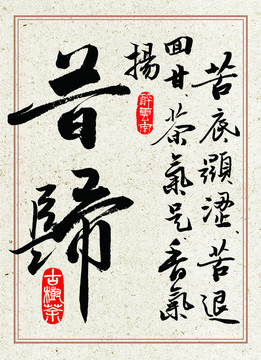 苦底顯澀、苦退
回甘、茶氣足香氣
揚
昔歸
古樹茶